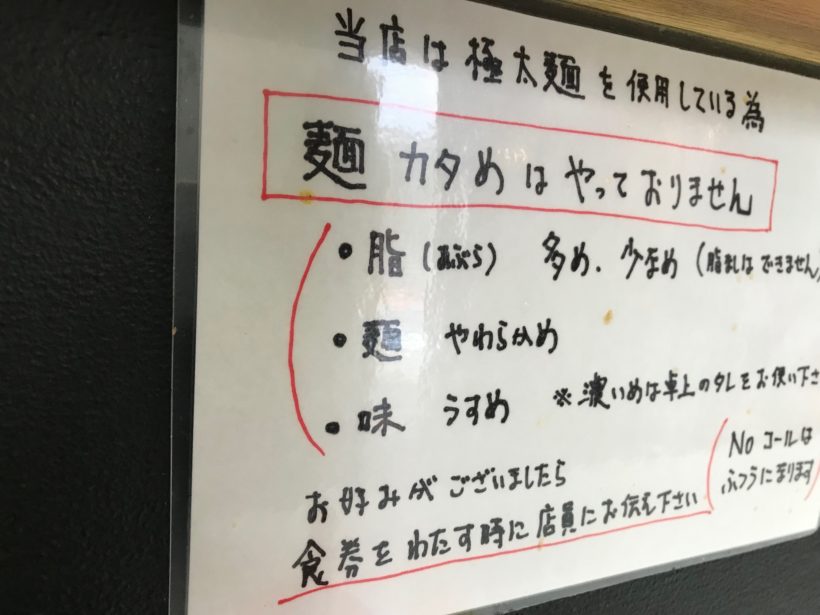 当店は 極太麺 を 使用している為
麺 カタめ は やって おりません
・脂(あぶら) 多め、少なめ (脂無しはできません)
・麺 やわらかめ
・味 うすめ ※濃いめは卓上のタレをお使い下さ
お好みが ございましたら
食券を わたす時に店員にお伝え下さい
(Noコールは
ふつうになります)